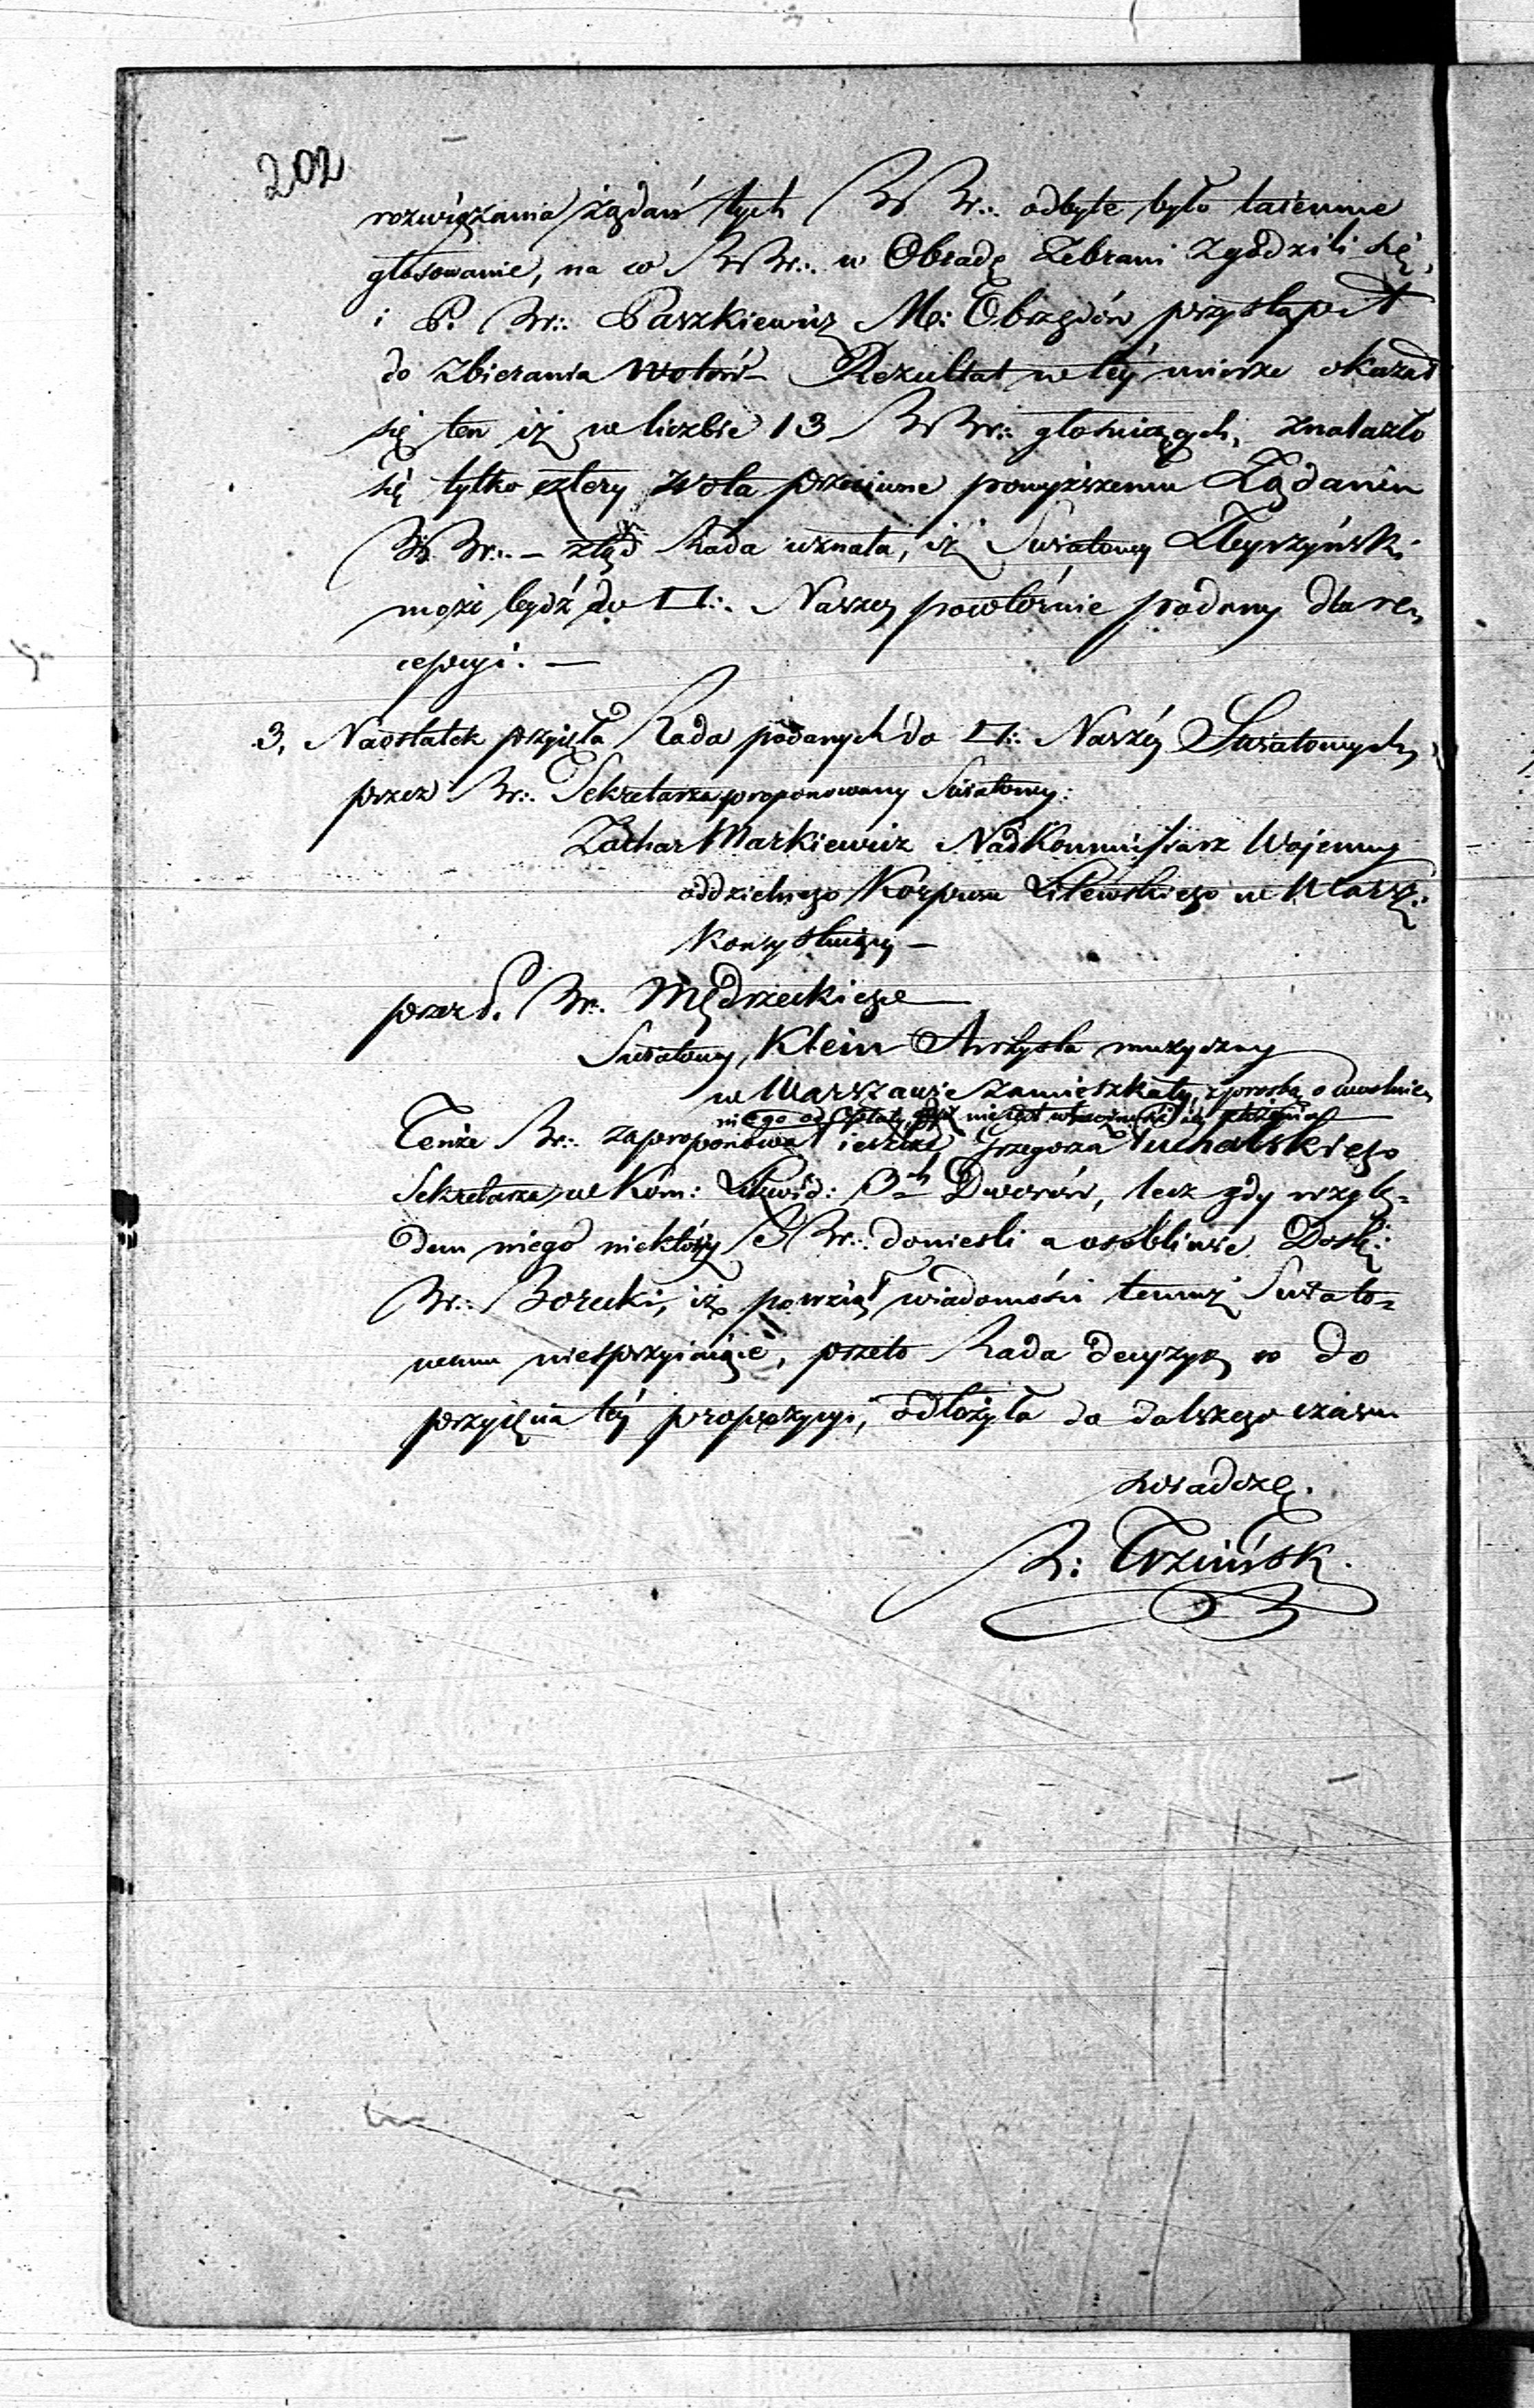 202
rozwiązania żądań tych BBr∴ odbyte było taiemne
głosowanie, na co BBr∴ w Obradę Zebrani zgodzili się,
i P. Br∴ Paszkiewicz M: Obrzędów przystąpił
do zbierania wotów – Rezultat w téy mierze okazał
się ten iż w liczbie 13 BBr∴ głosuiących, znalazło
się tylko cztery wota przeciwne powyższemu Żądaniu
BBr∴ – ztąd Rada uznała, iż Swiatowy
może bydź do □∴ Naszey powtórnie podany dla re,
cepcyi. —
3, Naostatek przyięła Rada podanych do □∴ Naszéy Swiatowych,
przez Br∴ Sekretarza proponowany Swiatowy:
Zachar Markiewicz NadKommissarz Wojenny
oddzielnego Korpusu Litewskiego w Warsz:
Konsystuiący –
przez P. Br∴ Mędrzeckiego —
Swiatowy, Klein Artysta muzyczny
w Warszawie zamieszkały, z prosbą o uwolnie,
niego od Opłaty, nie iest w
Tenże Br∴ zaproponował ieszcze Grzegorza Puchalskiego
Sekretarza w Kom: Likwid: 3ch Dworów, lecz gdy wzglę=
dem niego niektórzy BBr∴ donieśli a osobliwie Dostj:
Br∴ Borucki, iż powziął wiadomości temuż Swiato=
wemu niesprzyiaiące, przeto Rada decyzyą co do
przyięcia téy propozycyi, odłożyła do dalszego czasu
Swiadczę.
R: Trzińsk